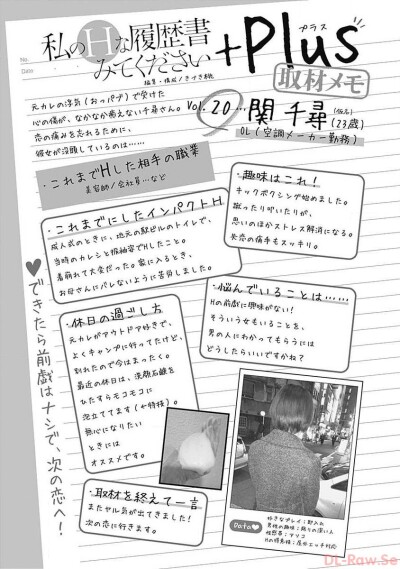 No.
Date
私のHな履歴書
みてください
+Plus
プラス
取材メモ
元カレの浮気(おっパブ)で受けた
心の傷が、なかなか癒えない千尋さん。
恋の痛みを忘れるために、
彼女が没頭しているのは……
Vol.20…関 千尋(仮名)
(23歳)
OL(空調メーカー勤務)
・これまでHした相手の職業
美容師/会社員…など
・趣味はこれ!
キックボクシング始めました。
蹴ったり叩いたりが、
思いのほかストレス解消になる。
失恋の痛手もスッキリ。
・これまでにしたインパクトH
成人式のときに、地元の駅ビルのトイレで、
当時のカレシと振袖姿でHしたこと。
着崩れて大変だった。家に入るとき、
お母さんにバレないように苦労しました。
・悩んでいることは……
Hの前戯に興味がない!
そういう女もいることを、
男の人にわかってもらうには
どうしたらいいですかね?
・休日の過ごし方
元カレがアウトドア好きで、
よくキャンプに行ってたけど、
別れたので今はまったく。
最近の休日は、洗顔石鹸を
ひたすらモコモコに
泡立ててます(←特技)。
無心になりたい
ときには
オススメです。
・取材を終えて一言
またヤル気が出てきました!
次の恋に行きます。
♥できたら前戯はナシで、次の恋へ!
Data♥
好きなプレイ:即入れ
DL-Raw.Se